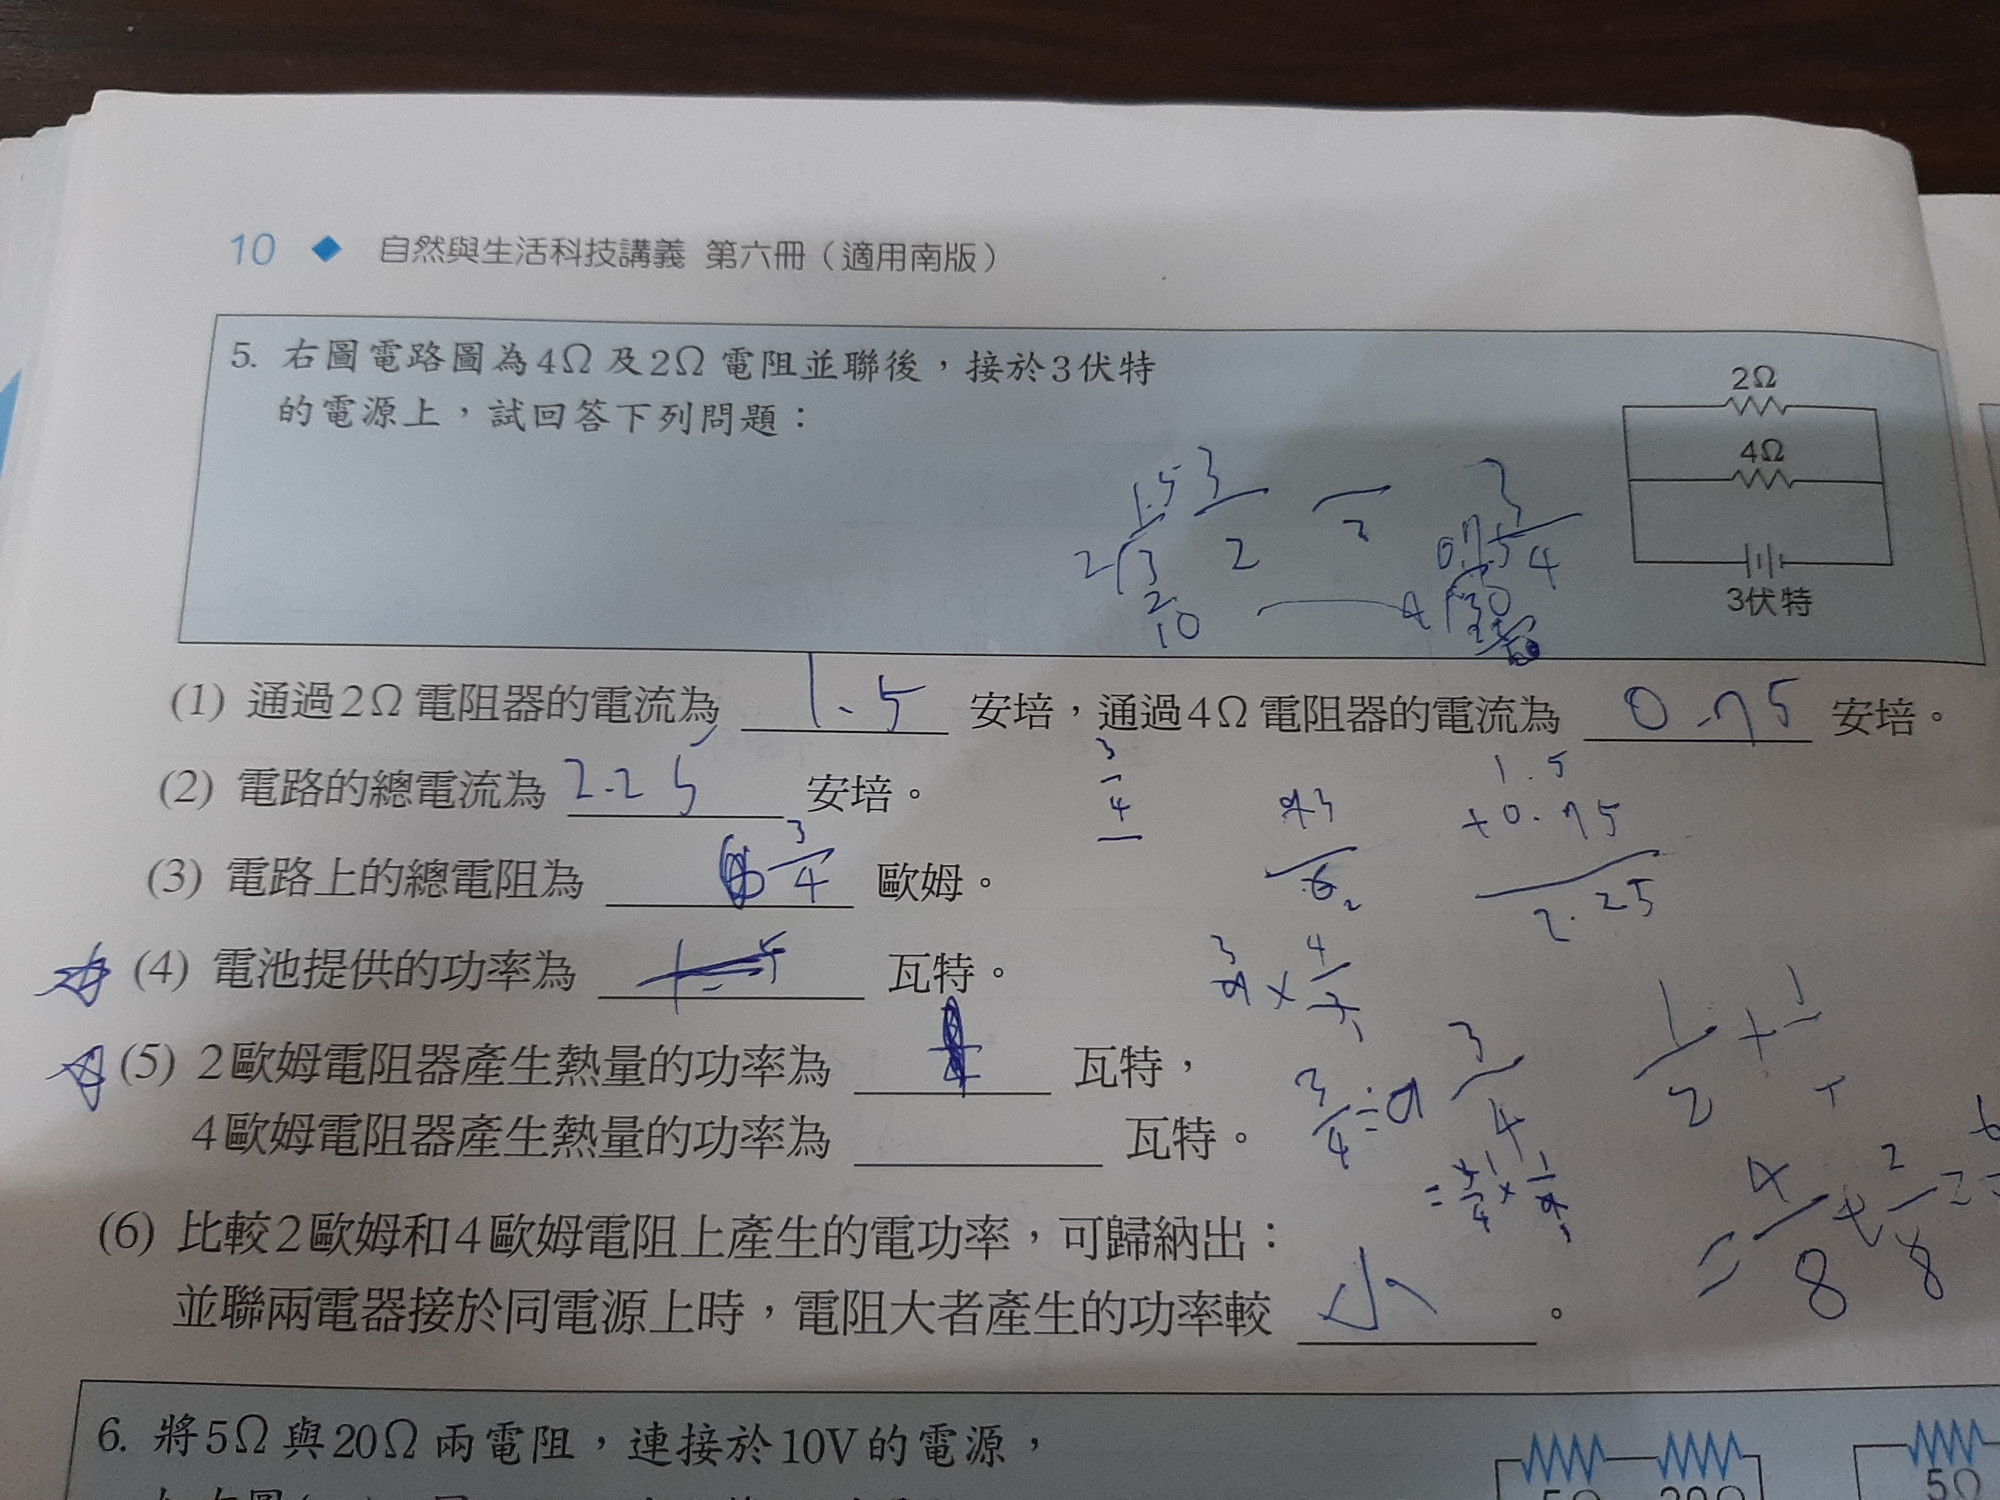 10 ◆ 自然與生活科技講義 第六冊（適用南版）
5. 右圖電路圖為4Ω及2Ω電阻並聯後，接於3伏特
的電源上，試回答下列問題：
2Ω
4Ω
3伏特
1.5 3
2 3 2 3 4
0.75
2
10
(1) 通過2Ω電阻器的電流為 1.5 安培，通過4Ω電阻器的電流為 0.75 安培。
(2) 電路的總電流為 2.25 安培。
3
4
1.5
+0.75
2.25
(3) 電路上的總電阻為 3/4 歐姆。
(4) 電池提供的功率為 瓦特。
(5) 2歐姆電阻器產生熱量的功率為 瓦特，
4歐姆電阻器產生熱量的功率為 瓦特。
3/4
1/2 +
= 4/8 + 2/8
(6) 比較2歐姆和4歐姆電阻上產生的電功率，可歸納出：
並聯兩電器接於同電源上時，電阻大者產生的功率較 小 。
6. 將5Ω與20Ω兩電阻，連接於10V的電源，
5Ω 20Ω 5Ω